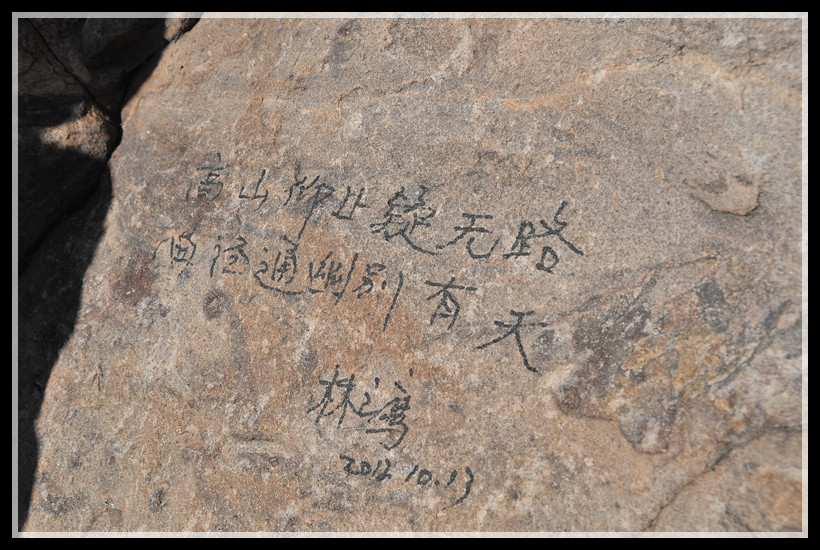 高山仰止疑无路
曲径通幽别有天
林湾
2012.10.13